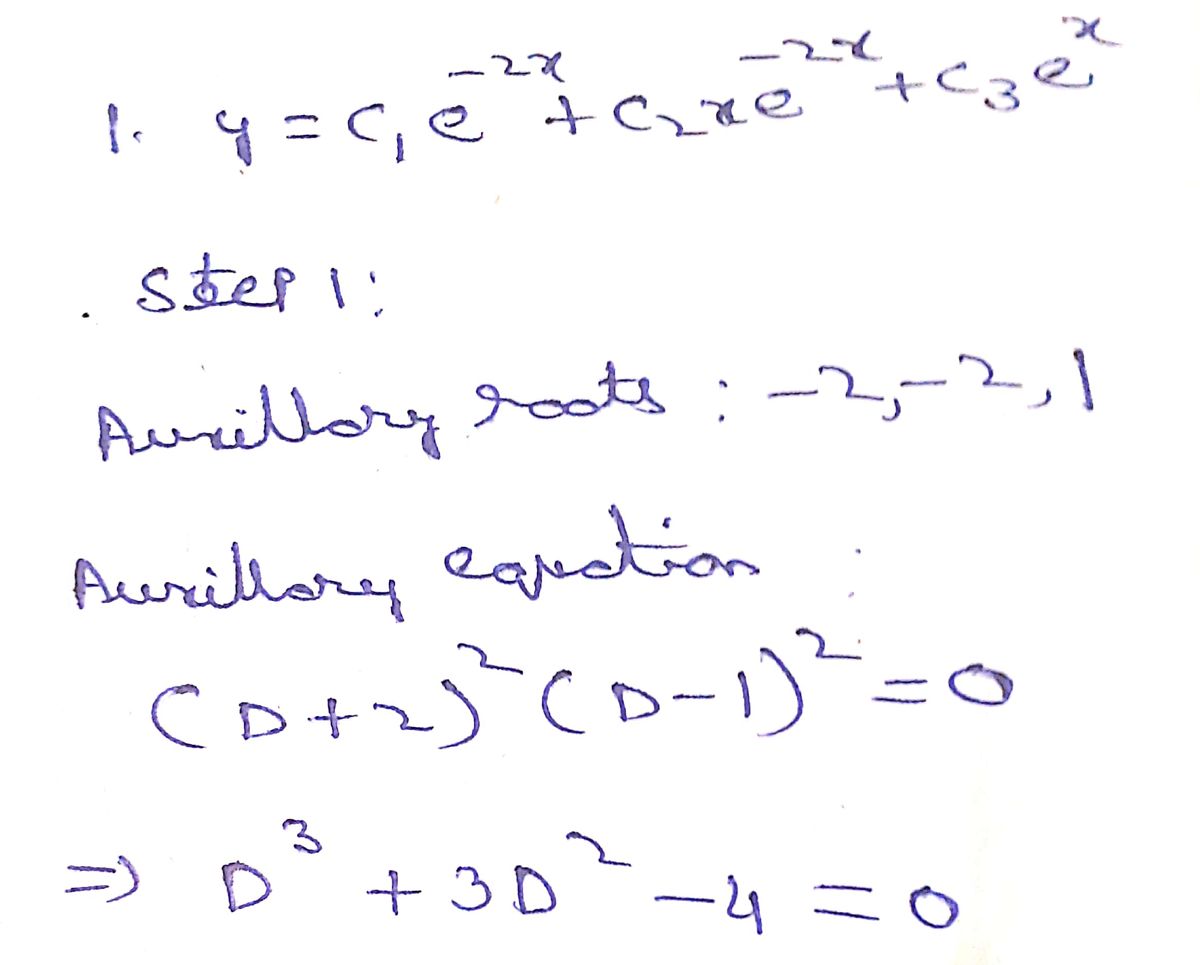 1. y = C₁e⁻²ˣ + C₂xe⁻²ˣ + C₃eˣ
. Step 1:
Auxillary roots : -2, -2, 1
Auxillary equation :
(D+2)² (D-1)² = 0
⇒ D³ + 3D² - 4 = 0